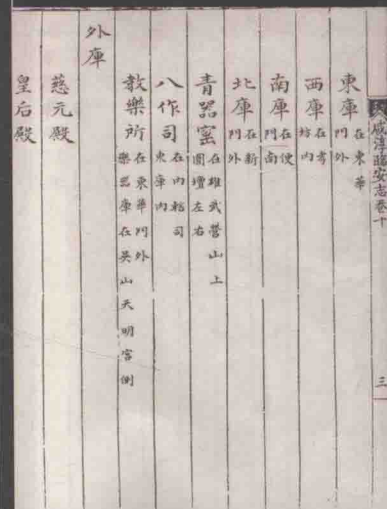 咸淳臨安志卷十
三
東庫在東華門外
西庫在孝坊內
南庫在便門南
北庫在新門外
青器窑在雄武營山上圓壇左右
八作司在內轄司東庫內
教樂所在東華門外樂器庫在吳山天明宮側
外庫
慈元殿
皇后殿